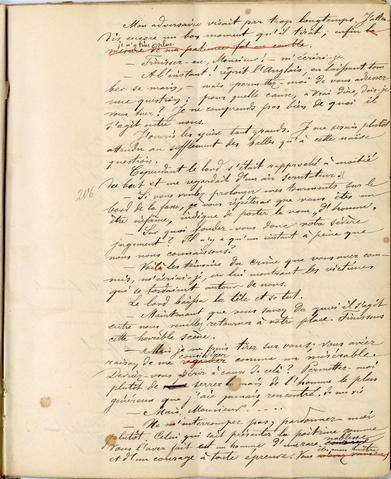 Mon adversaire visait par trop longtemps. J'atten-
dis encore un bon moment qu'il tirât; enfin la
je n'y tins plus.
mesure de ma patience fut en comble.
— Finissez-en, Monsieur! — m'écriai-je.
— A l'instant! reprit l'Anglais, en laissant tom-
ber sa main, — mais permettez-moi de vous adresser
une question; pour quelle cause, à vrai dire, dois-je
vous tuer? Je ne comprends pas bien de quoi il
s'agit entre nous.
J'ouvris les yeux tant grands. Je me serais plutôt
attendu au sifflement des balles qu'à cette naïve
question.
Cependant le lord s'était rapproché à moitié
du but et me regardait d'un air scrutateur.
206
— Si vous voulez prolonger mes tourments sur le
bord de la fosse, je vous répéterai que vous êtes un
être infâme, indigne de porter le nom d'homme.
— Sur quoi fondez-vous donc votre sévère
jugement? Il n'y a qu'un instant à peine que
nous nous connaissons?
— Voilà les témoins du crime que vous avez com-
mis, m'écriai-je, en lui montrant les victimes
qui se tordaient autour de nous.
Le lord baissa la tête et se tut.
— Maintenant que vous savez de quoi il s'agit
entre nous, veuillez retourner à votre place. Finissons
cette horrible scène.
— Mais je ne puis tirer sur vous. Vous aviez
raison de me considérer
regarder comme un misérable.
Devriez-vous périr à cause de cela? Permettez-moi
plutôt de serrer la main de l'homme le plus
généreux que j'aie jamais rencontré, de ma vie
— Mais, Monsieur . . . . .
— Ne m'interrompez pas, pardonnez-moi
plutôt. Celui qui sait présenter la poitrine comme
vous l'avez fait est un homme d'une rare noblesse
et d'un courage à toute épreuve. Vous